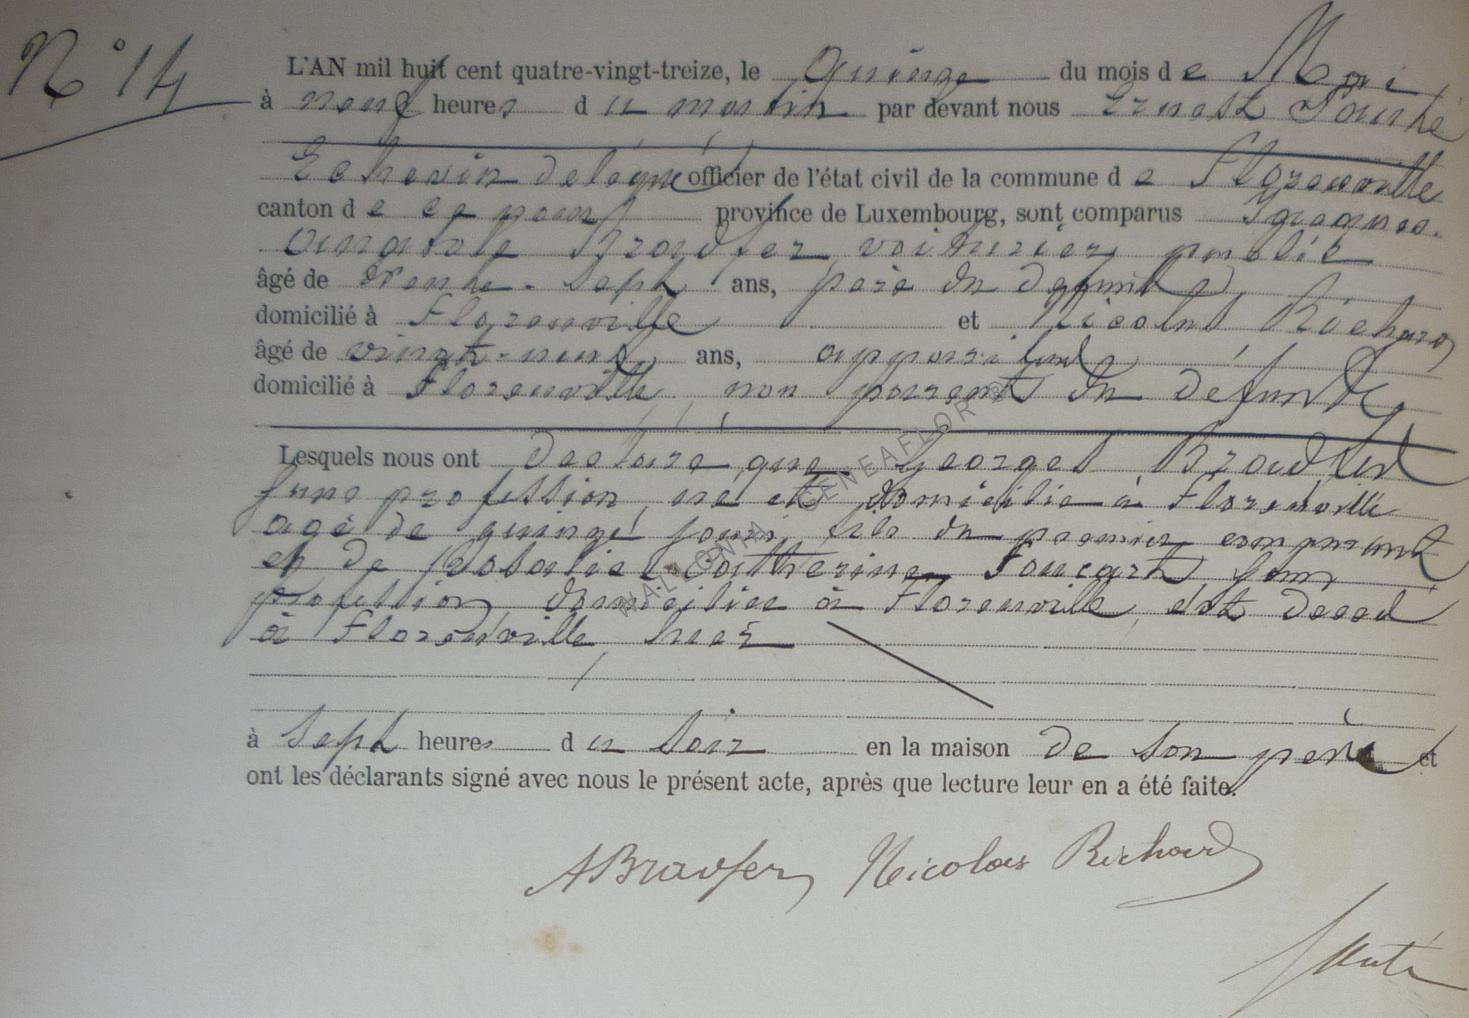 N° 14
L'AN mil huit cent quatre-vingt-treize, le quinze du mois de Mai
à neuf heures du matin par devant nous Ernest
Echevin délégué officier de l'état civil de la commune de Florenville
canton de ce nom province de Luxembourg, sont comparus
Bradfer, voiturier public
âgé de trente-sept ans, père du défunt
domicilié à Florenville et Nicolas Richard
âgé de vingt-neuf ans, appariteur
domicilié à Florenville non parent du défunt
Lesquels nous ont déclaré que Georges Bradfer
sans profession né et domicilié à Florenville
agé de quinze jours, fils du premier comparant
et de Rosalie Catherine Foucart sans
profession, domiciliée à Florenville, est décédé
à Florenville, hier
à sept heures du soir en la maison de son père et
ont les déclarants signé avec nous le présent acte, après que lecture leur en a été faite.
ABradfer Nicolas Richard